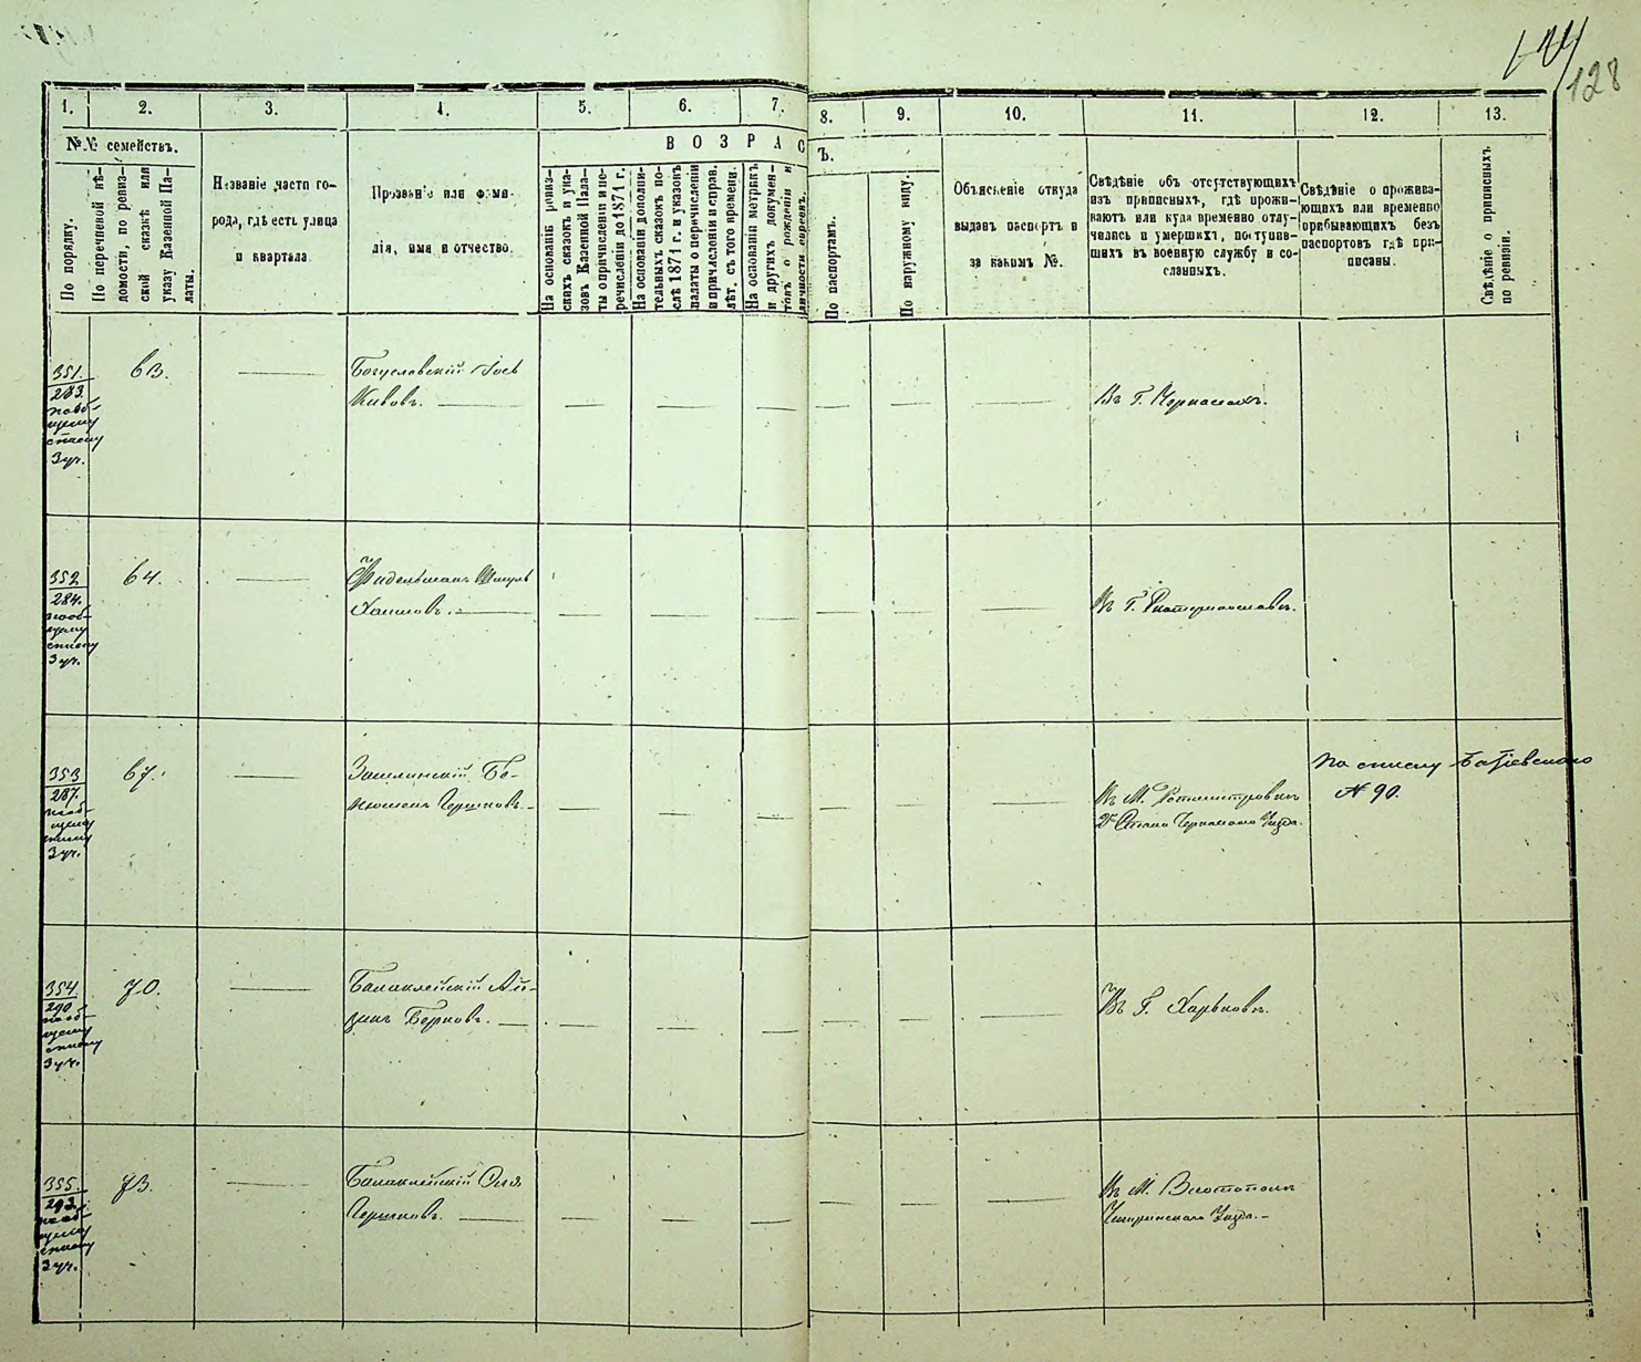 128
1. 2. 3. 4. 5. 6. 7. 8. 9. 10. 11. 12. 13.
№№ семействъ.
По порядку.
По перечневой вѣ-
домости, по ревиз-
ской сказкѣ или
указу Казенной Па-
латы.
Названіе части го-
рода, гдѣ есть улица
и квартала
Прозваніе или фами-
лія, имя и отчество.
ВОЗРАСТЪ.
На основаніи ревиз-
скихъ сказокъ и ука-
зовъ Казенной Пала-
ты о причисленіи и пе-
речисленіи до 1871 г.
На основаніи дополни-
тельныхъ сказокъ по-
слѣ 1871 г. и указовъ
палаты о перечисленіи
и причисленіи и справ.
лѣт. съ того времени.
На основаніи метрикъ
и другихъ докумен-
товъ о рожденіи и
личности евреевъ.
По паспортамъ.
По наружному виду.
Объясненіе откуда
выданъ паспортъ и
за какимъ №.
Свѣдѣніе объ отсутствующихъ
изъ приписныхъ, гдѣ прожи-
ваютъ или куда временно отлу-
чились и умершихъ, поступив-
шихъ въ военную службу и со-
сланныхъ.
Свѣдѣніе о прожива-
ющихъ или временно
прибывающихъ безъ
паспортовъ гдѣ при-
писаны.
Свѣдѣніе о приписныхъ
по ревизіи.
351.
283.
по об-
щему
списку
3 уч.
63.
Богуславскій Іось
Кивовъ.
Въ Г. Черкасахъ.
352
284.
по об-
щему
списку
3 уч.
64.
Фидельманъ Шмуль
Хаимовъ.
Въ Г. Екатеринославѣ.
353
287.
по об-
щему
списку
3 уч.
67.
Заслинскій Бе-
Гершковъ.
Въ М. Ротмистровкѣ
2го Стана Черкаскаго Уѣзда.
По списку
№ 90.
354.
290
по об-
щему
списку
3 уч.
70.
Балаклейскій Ай-
зикъ Берковъ.
Въ Г. Харьковѣ.
355.
293.
по об-
щему
списку
3 уч.
73.
Балаклейскій
Гершковъ.
Въ М. Златополѣ
Чигиринскаго Уѣзда.